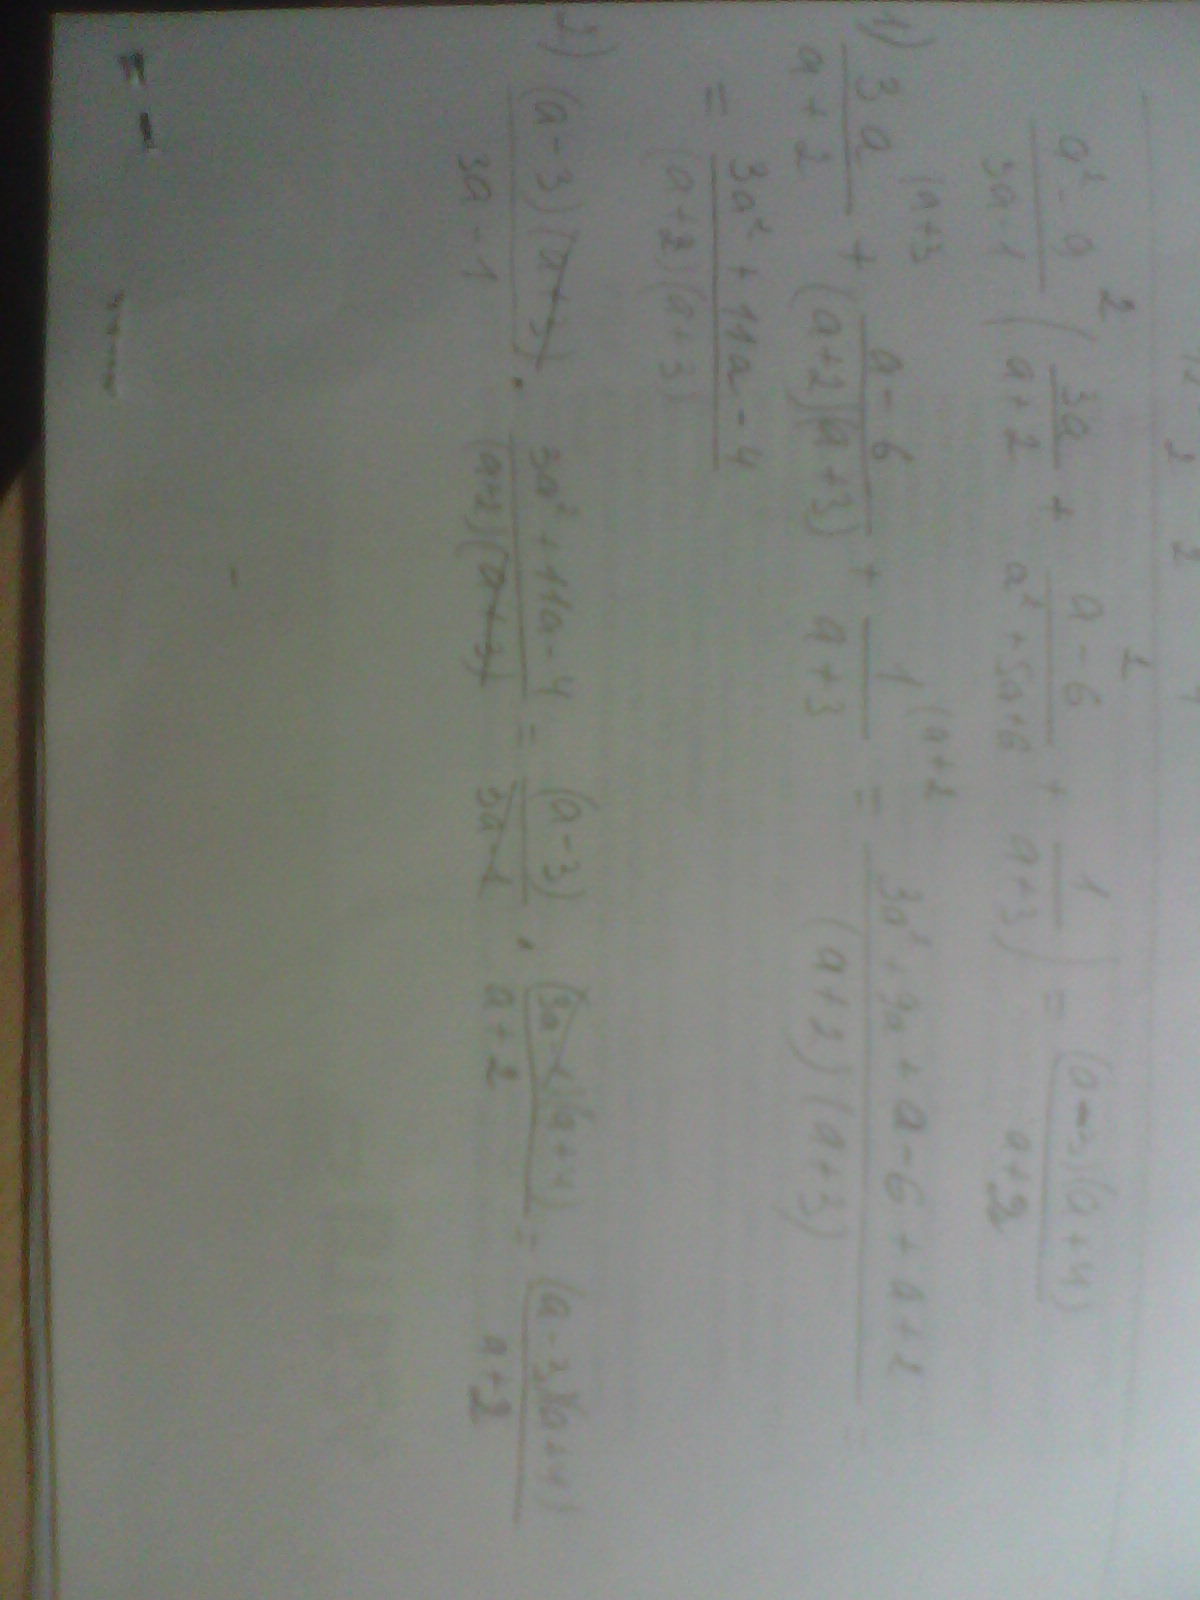 2 1
(a² - 9)/(3a - 1) (3a/(a + 2) + (a - 6)/(a² + 5a + 6) + 1/(a + 3)) = (a - 3)(a + 4)/(a + 2)
1) 3a/(a + 2) (a + 3 + (a - 6)/((a + 2)(a + 3)) + 1/(a + 3) (a + 2 = (3a² + 9a + a - 6 + a + 2)/((a + 2)(a + 3)) =
= (3a² + 11a - 4)/((a + 2)(a + 3))
2) (a - 3)(a + 3)/(3a - 1) · (3a² + 11a - 4)/((a + 2)(a + 3)) = (a - 3)/(3a - 1) · (3a - 1)(a + 4)/(a + 2) = (a - 3)(a + 4)/(a + 2)